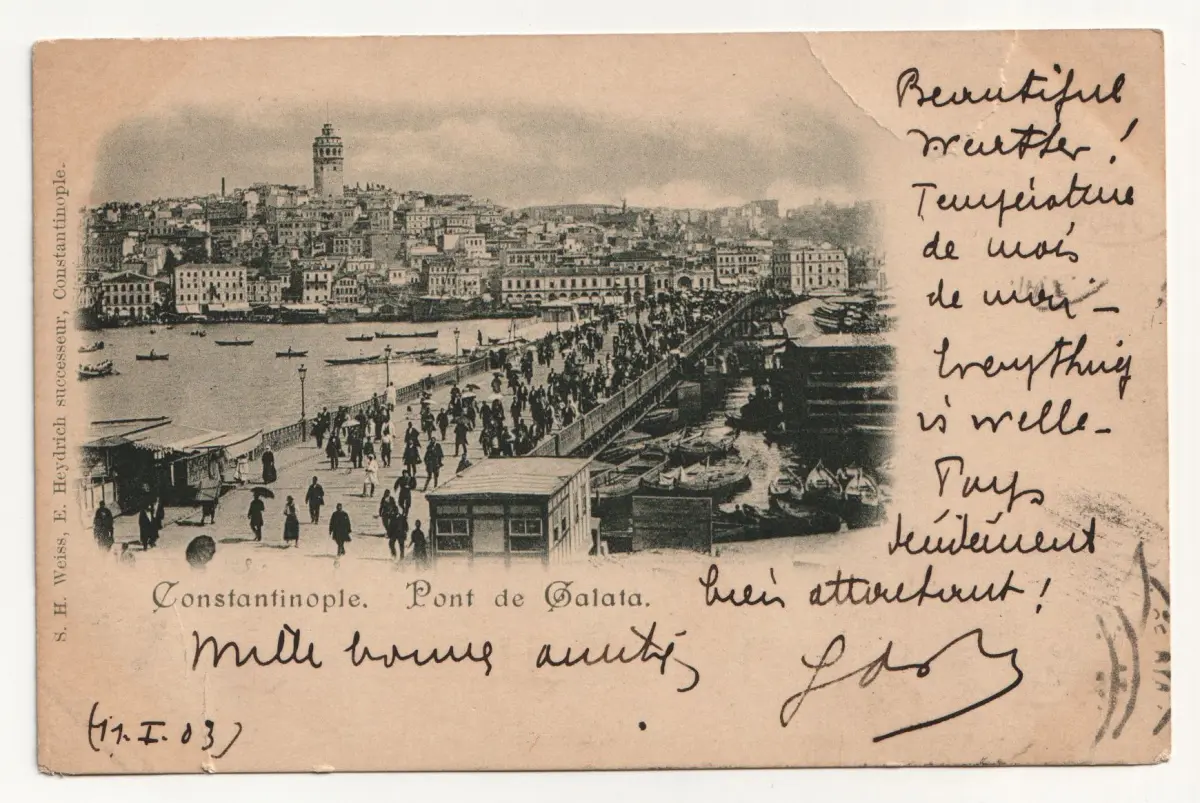 Beautiful
weather !
Température
de mois
de mai –
Everything
is welle –
Pays
décidément
bien attachant !
Constantinople. Pont de Galata.
Mille bonnes amitiés
(11. I. 03)
S. H. Weiss, E. Heydrich successeur, Constantinople.